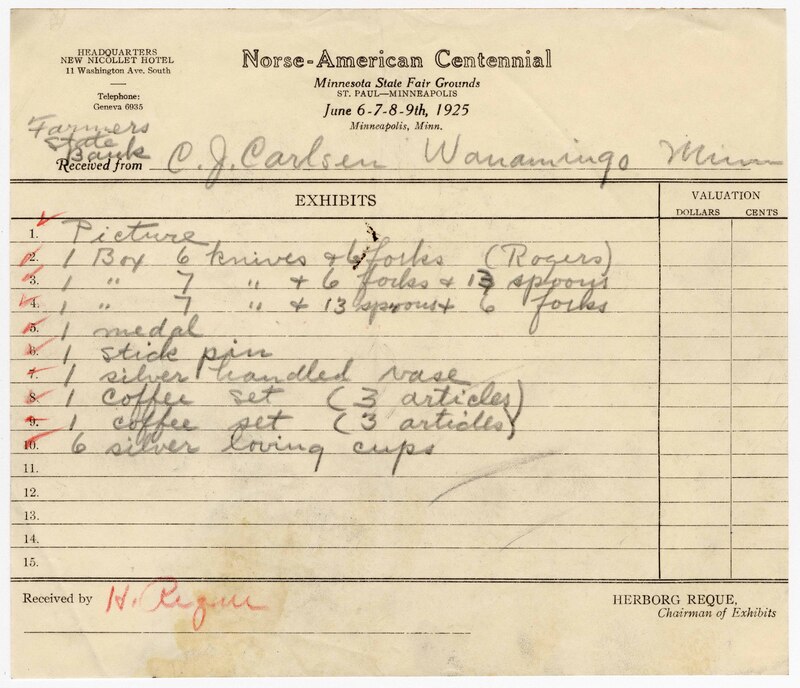 HEADQUARTERS
NEW NICOLLET HOTEL
11 Washington Ave. South
Telephone:
Geneva 6935
Norse-American Centennial
Minnesota State Fair Grounds
ST. PAUL—MINNEAPOLIS
June 6-7-8-9th, 1925
Minneapolis, Minn.
Farmers
State
Bank
Received from C. J. Carlsen Wanamingo Minn
EXHIBITS
VALUATION
DOLLARS CENTS
1. Picture
2. 1 Box 6 knives + 6 forks (Rogers)
3. 1 " 7 " + 6 forks + 13 spoons
4. 1 " 7 " + 13 spoons + 6 forks
5. 1 medal
6. 1 stick pin
7. 1 silver handled vase
8. 1 coffee set (3 articles)
9. 1 coffee set (3 articles)
10. 6 silver loving cups
11.
12.
13.
14.
15.
Received by H. Reque
HERBORG REQUE,
Chairman of Exhibits